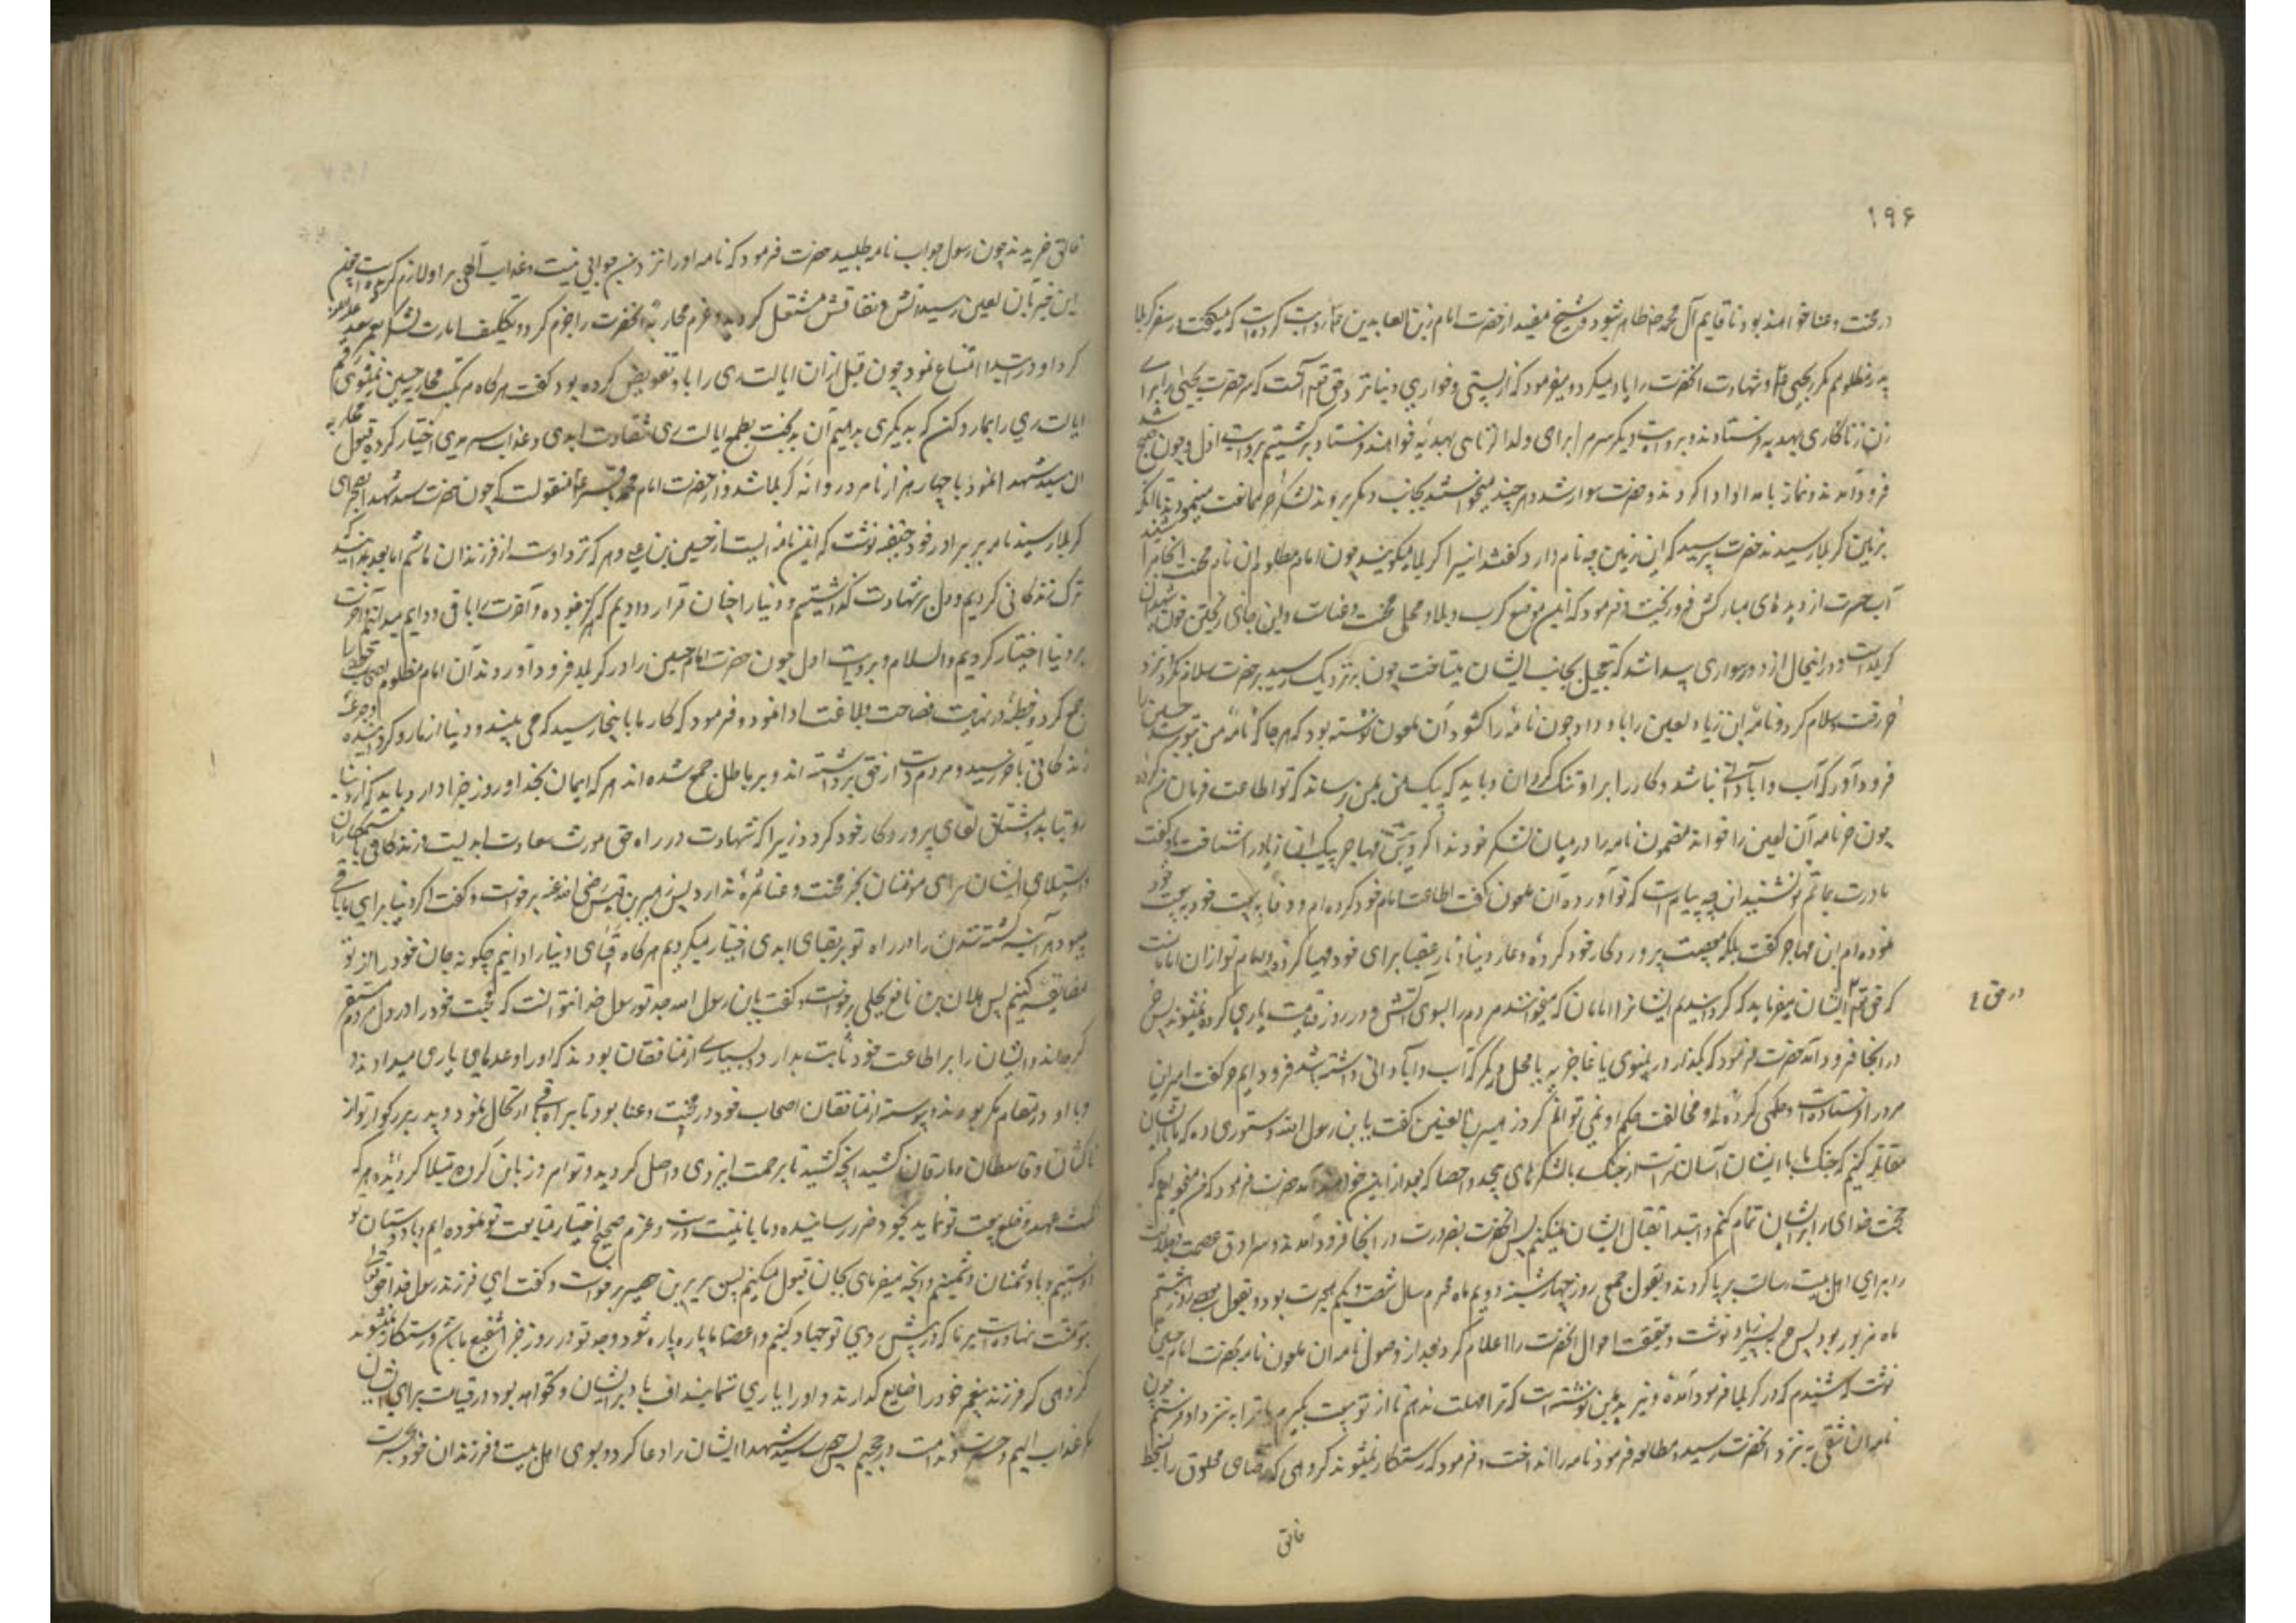 ۱۹۶
در محنت و عنا خواهند بود تا قایم آل محمد ظاهر شود و شیخ مفید از حضرت امام زین العابدین روایت کرده است که میگفت در سفر کربلا
پدر مظلومم مکرر یحیی و شهادت آنحضرت را یاد میکرد و میفرمود که از پستی و خواری دنیا نزد حق تعم آنست که سر حضرت یحیی را برای
زن زناکاری بهدیه فرستادند و بروایت دیگر سرم را برای ولد الزنائی بهدیه خواهند فرستاد برگشتیم بروایت اول و چون صبح شد
فرود آمدند و نماز بامداد ادا کردند و حضرت سوار شد و هر چند میخواستند بجانب دیگر بروند لشکر حر ممانعت مینمودند تا آنکه
بزمین کربلا رسیدند حضرت پرسید که این زمین چه نام دارد گفتند اینرا کربلا میگویند چون امام مظلوم آن نام محنت انجام را شنید
آب حسرت از دیده های مبارکش فرو ریخت و فرمود که این موضع کرب و بلا و محل محنت و عناست و این جای ریختن خون شهیدان
کربلاست و در اینحال از دور سواری پیدا شد که بتعجیل بجانب ایشان میتاخت چون بنزدیک رسید بر حضرت سلام نکرد و نزد
حر رفت و سلام کرد و نامه ابن زیاد لعین را باو داد چون نامه را گشود آن ملعون نوشته بود که هر جا که نامه من بتو برسد حسین را
فرود آور که آب و آبادانی نباشد و کار را بر او تنک گردان و باید که پیک من بمن رساند که تو اطاعت فرمان من کرده
چون حر نامه آن لعین را خواند مضمون نامه را در میان لشکر خود ندا کرد مهاجر پیک ابن زیاد را شناخت باو گفت
مادرت بماتم تو نشیند این چه پیام است که تو آورده آن ملعون گفت اطاعت امام خود کرده ام و وفا به بیعت خود
نموده ام ابن مهاجر گفت بلکه معصیت پروردگار خود کرده و عار دنیا و نار عقبا برای خود مهیا کرده و امام تو از آن امامانست
که حق تعم ایشان میفرماید که گردانیدیم ایشانرا امامان که میخوانند مردم را بسوی آتش و در روز قیامت یاری کرده نمیشوند پس حر
در حق
در آنجا فرود آمد حضرت فرمود که بگذار در نینوی یا غاضریه یا محل دیگر که آب و آبادانی داشته باشد فرود آیم حر گفت امیر این
مرد را فرستاده است و حکمی کرده و مخالفت حکم او نمی توانم کرد زهیر بن القین گفت یابن رسول الله دستوری ده که ما با ایشان
مقاتله کنیم که جنک ما با ایشان آسان تر است از جنک با لشکرهای بیحد و احصا که بعد از این خواهند آمد حضرت فرمود که من میخواهم که
حجت خدای را بر ایشان تمام کنم و ابتدا بقتال ایشان نمیکنم پس آنحضرت بضرورت در آنجا فرود آمدند و سرادق عصمت و جلالت
را برای اهل بیت رسالت برپا کردند و بقول جمعی روز چهارشنبه دویم ماه محرم سال شصت و یکم هجرت بود و بقول بعضی روز هشتم
ماه مزبور بود پس حر بپسر زیاد نوشت و حقیقت احوال آنحضرت را اعلام کرد بعد از وصول نامه آن ملعون نامه بحضرت امام حسین
نوشت که شنیدم که در کربلا فرود آمده و یزید بمن نوشته است که ترا مهلت ندهم تا از تو بیعت بگیرم یا ترا به نزد او فرستم چون
نامه آن شقی به نزد آنحضرت رسید و مطالعه فرمود نامه را انداخت و فرمود که رستکار نمیشوند گروهی که رضای مخلوق را بسخط
خالق
خالق خریدند چون رسول جواب نامه طلبید حضرت فرمود که نامه او را نزد من جوابی نیست و عذاب آلهی بر او لازم گردیده است چون
این خبر بآن لعین رسید آتش نفاقش مشتعل گردید و عزم محاربه آنحضرت را جزم کرد و تکلیف امارت لشکر بعمر سعد
کرد او در ابتدا امتناع نمود چون قبل از آن ایالت ری را باو تفویض کرده بود گفت هرگاه مرتکب محاربه حسین نمیشوی رقم
ایالت ری را بما رد کن که بدیگری بدهیم آن بدبخت بطمع ایالت ری شقاوت ابدی و عذاب سرمدی اختیار کرده قبول محاربه
آن سید شهدا نموده با چهار هزار نامرد روانه کربلا شد و از حضرت امام محمد باقر منقولست که چون حضرت سید شهدا بصحرای
کربلا رسید نامه ببرادر خود حنفیه نوشت که این نامه ایست از حسین بن علی و هر که نزد اوست از فرزندان هاشم اما بعد بدانید که
ترک زندگانی کردیم و دل بر شهادت گذاشتیم و دنیا را چنان قرار دادیم که هرگز نبوده و آخرت را باقی و دایم میدانیم و آخرت
بر دنیا اختیار کردیم والسلام و بروایت اول چون حضرت امام حسین را در کربلا فرود آوردند آن امام مظلوم اصحاب خود را
جمع کرد و خطبه در نهایت فصاحت و بلاغت ادا نمود و فرمود که کار ما باینجا رسید که می بینید و دنیا از ما رو گردانیده و جرعه
زندگانی بآخر رسید و مردم دست از حق برداشته اند و بر باطل جمع شده اند هر که ایمان بخدا و روز جزا دارد باید که از دنیا
رو بتابد و مشتاق لقای پروردگار خود گردد زیرا که شهادت در راه حق مورث سعادت ابدیست و زندگانی با ستمکاران
و استیلای ایشان برای مؤمنان بجز محنت و عنا ثمره ندارد پس زهیر بن قیس رضی الله عنه برخواست و گفت اگر دنیا برای ما باقی
میبود هر آینه کشته شدن را در راه تو بر بقای ابدی اختیار میکردیم هرگاه فنای دنیا را دانیم چگونه جان خود را از تو
مضایقه کنیم پس هلال بن نافع بجلی برخواست و گفت یابن رسول الله جد تو رسول خدا نتوانست که محبت خود را در دل مردم مستقر
گرداند و ایشان را بر اطاعت خود ثابت بدارد و بسیاری از منافقان بودند که او را وعدهای یاری میدادند و
با او در مقام مکر بودند و پیوسته از منافقان اصحاب خود در محنت و عنا بود تا بسرای باقی ارتحال نمود و پدر بزرگوار تو از
ناکثان و قاسطان و مارقان کشید آنچه کشید تا برحمت ایزدی واصل گردید و تو هم در زبان گروه مبتلا گردیده هر که
نکث عهد و خلع بیعت تو نماید بخود ضرر رسانیده و ما با نیت درست و عزم صحیح اختیار متابعت تو نموده ایم و با دوستان تو
دوستیم و با دشمنان دشمنیم و آنچه میفرمای بجان قبول میکنیم پس بریر بن خضیر برخواست و گفت ای فرزند رسول خدا حق تعالی
بوجودت منت نهاده است بر ما که در پیش روی تو جهاد کنیم و اعضا ما پاره پاره شود و جد تو در روز جزا شفیع ما باشد و رستکار نمیشوند
گروهی که فرزند پیغمبر خود را ضایع گذارند و او را یاری ننمایند اف باد بر ایشان و نخواهد بود در قیامت برای ایشان
مگر عذاب الیم و حسرت و ندامت در جحیم پس سید شهدا ایشان را دعا کرد و بسوی اهل بیت و فرزندان خود بحسرت